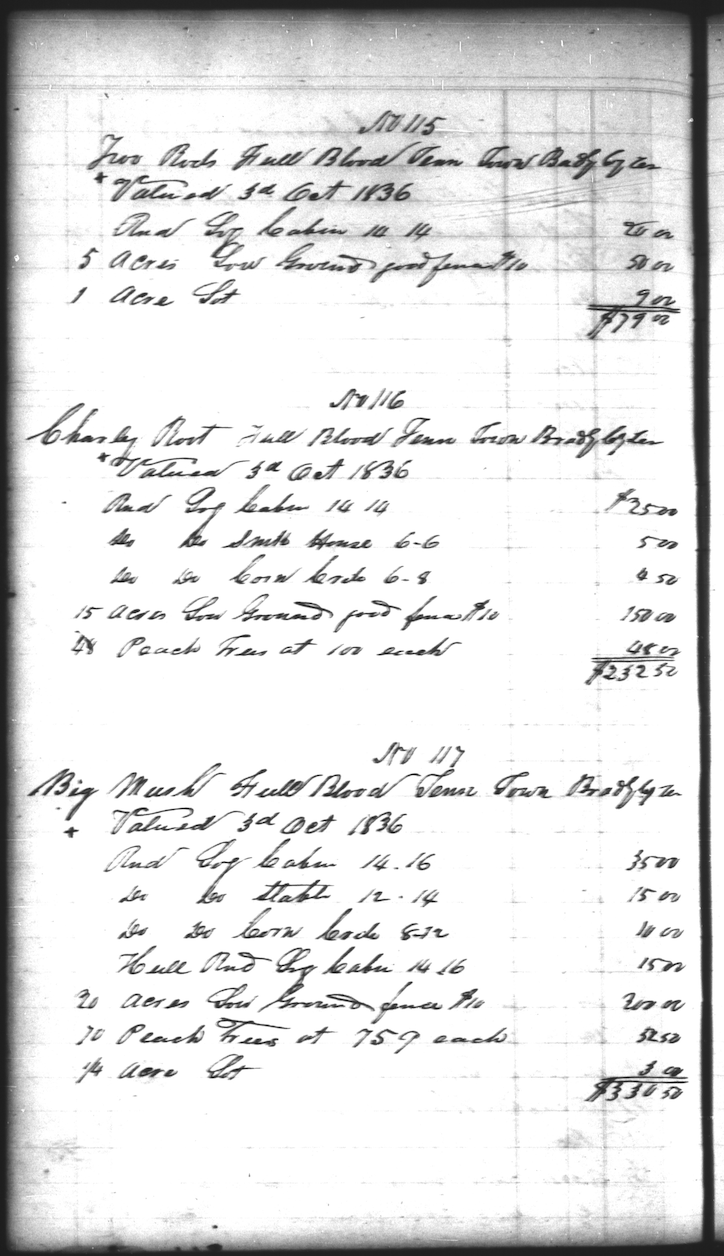 No 115
Two Rods Full Blood Tenn Town Bradly Cy Ten
+ Valued 3d Oct 1836
Rnd Log Cabin 14 14 20 00
5 Acres Low Ground good fence $10 50 00
1 Acre Lot 9 00
$79 00
No 116
Charley Root Full Blood Tenn Town Bradly Cy Ten
+ Valued 3d Oct 1836
Rnd Log Cabin 14 14 $25 00
Do Do Smth House 6-6 5 00
Do Do Corn Crib 6-8 4 50
15 Acres Low Ground good fence $10 150 00
48 Peach Trees at 100 each 48 00
$232 50
No 117
Big Mush Full Blood Tenn Town Bradly Cy Ten
+ Valued 3d Oct 1836
Rnd Log Cabin 14-16 35 00
Do Do Stable 12-14 15 00
Do Do Corn Crib 8-12 10 00
Hull Rnd Log Cabin 14 16 15 00
20 Acres Low Ground fence $10 200 00
70 Peach Trees at 75 ¢ each 52 50
1/4 Acre Lot 3 00
$330 50